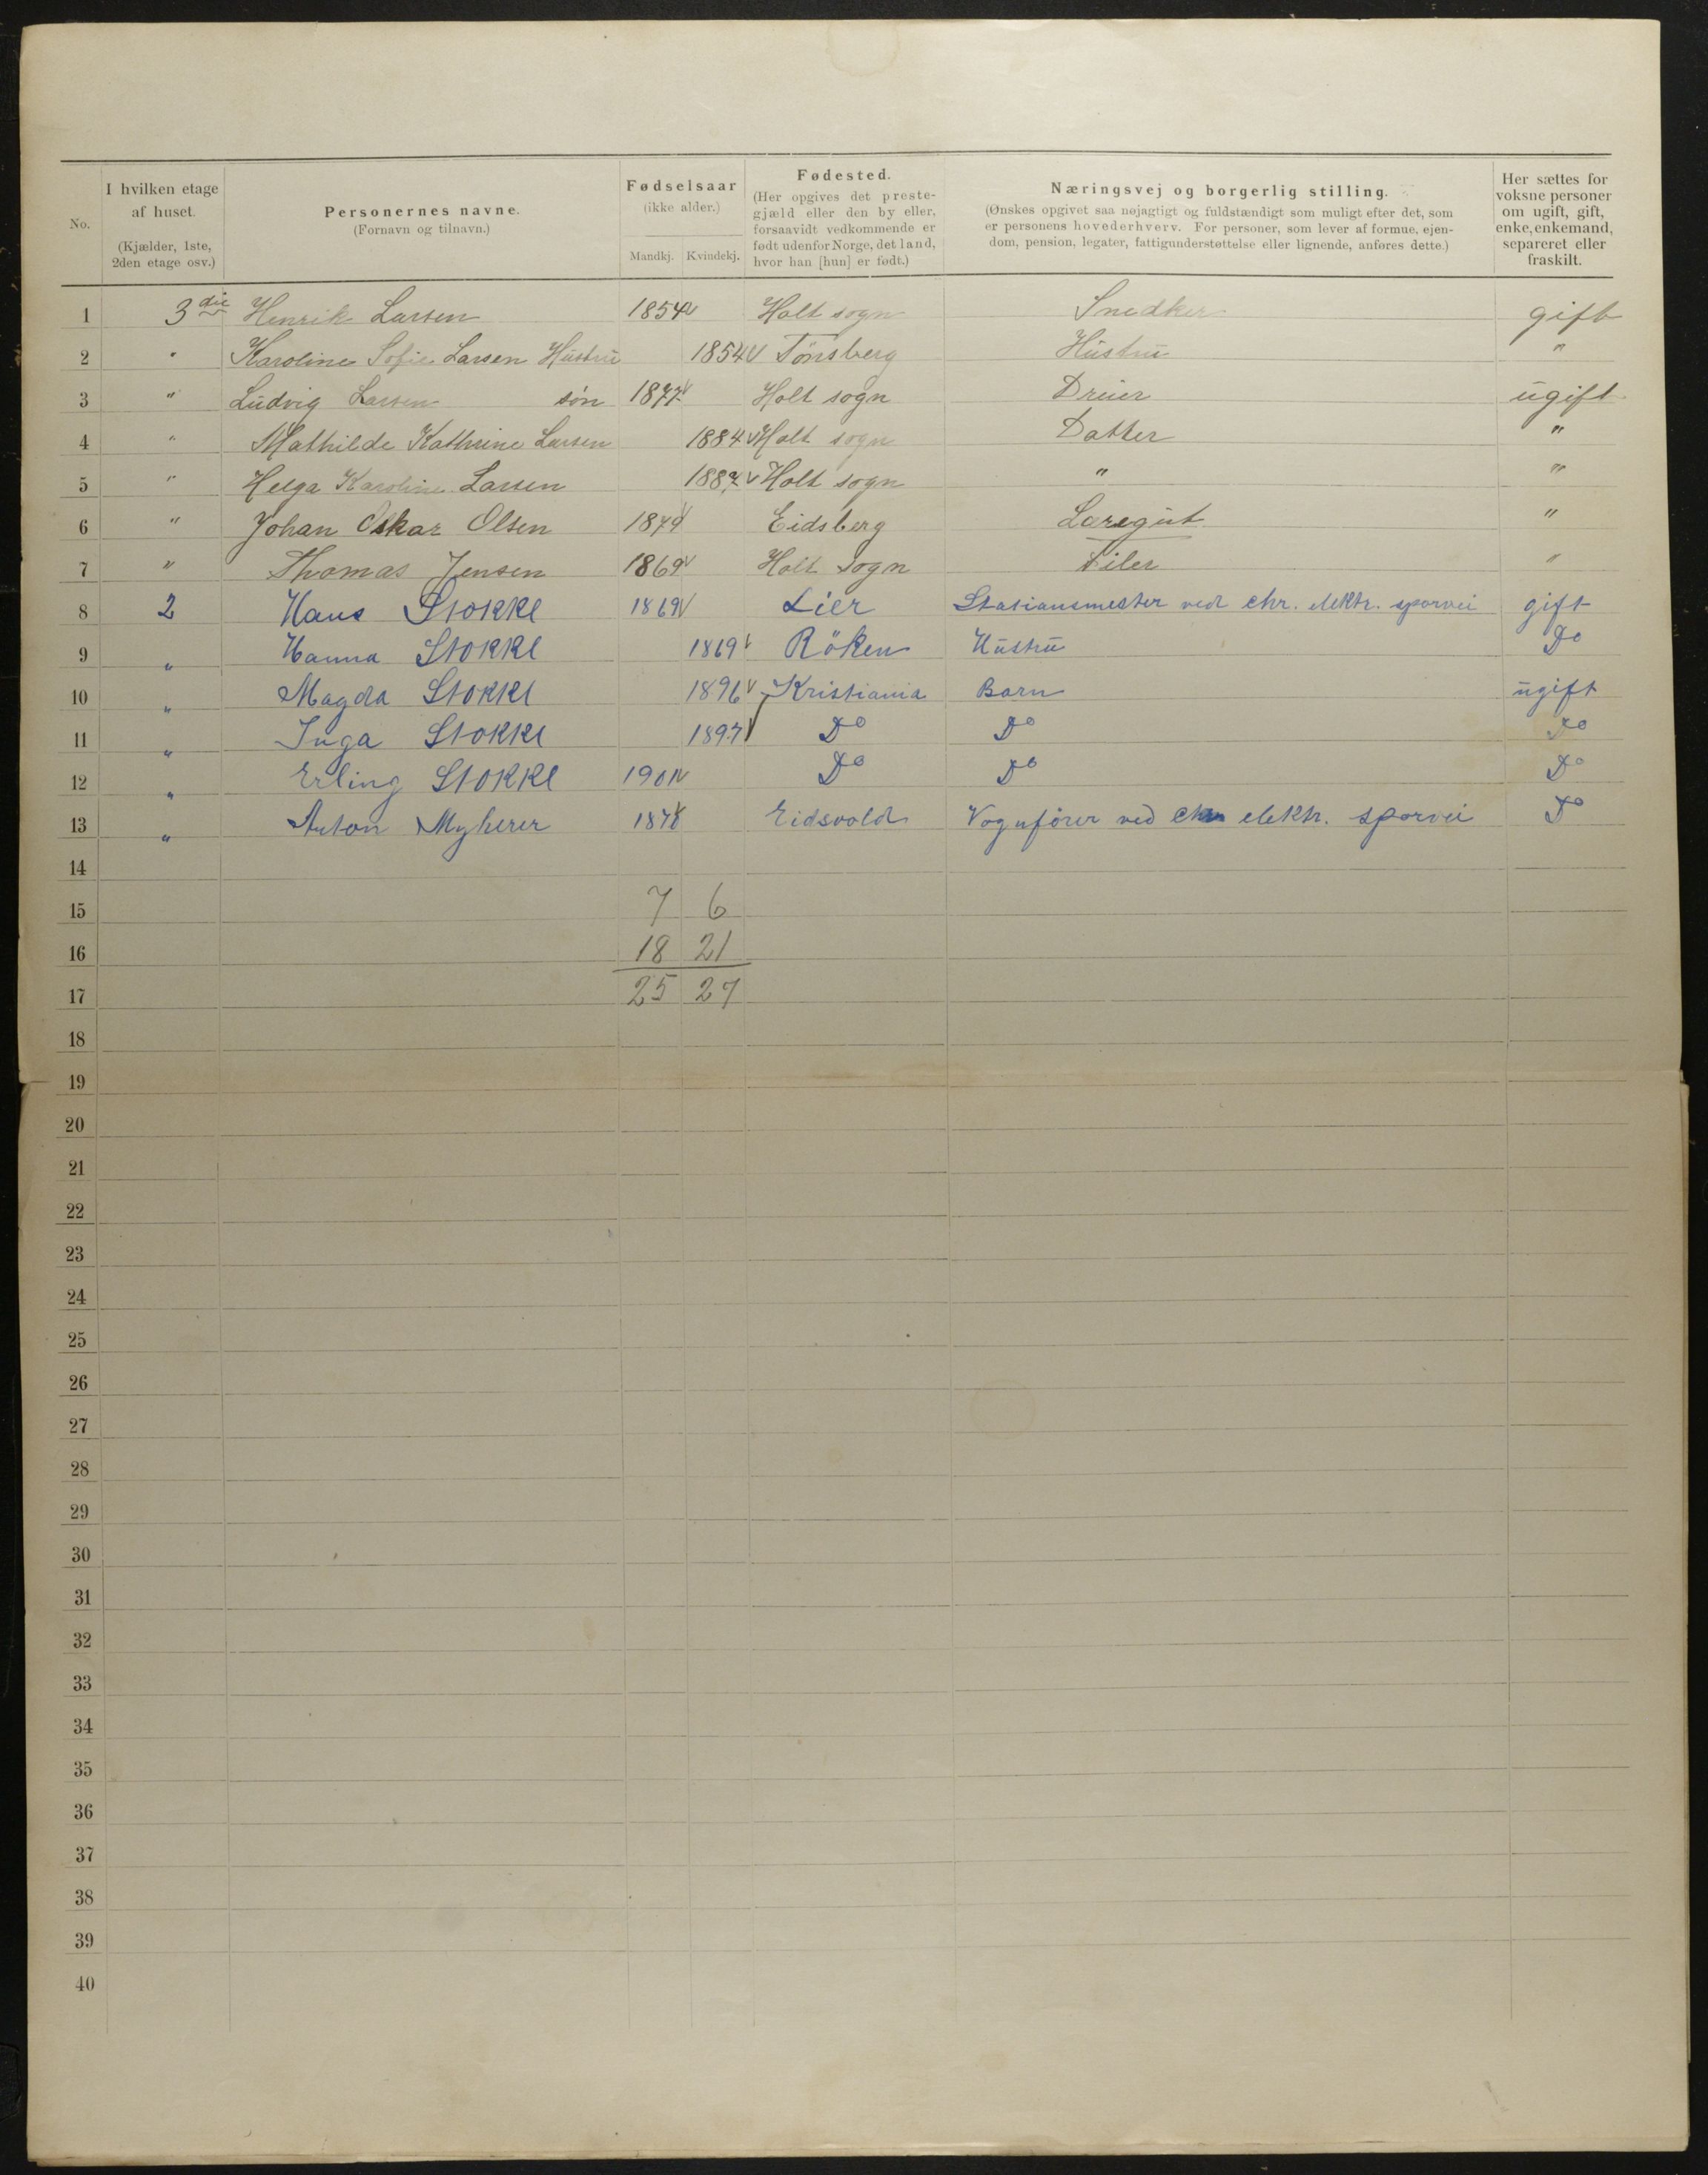 No. I hvilken etage af huset. (Kjælder, 1ste, 2den etage osv.) Personernes navne. (Fornavn og tilnavn.) Fødselsaar (ikke alder.) Mandkj. Kvindekj. Fødested. (Her opgives det prestegjæld eller den by eller, forsaavidt vedkommende er født udenfor Norge, det land, hvor han [hun] er født.) Næringsvej og borgerlig stilling. (Ønskes opgivet saa nøjagtigt og fuldstændigt som muligt efter det, som er personens hovederhverv. For personer, som lever af formue, ejendom, pension, legater, fattigunderstøttelse eller lignende, anføres dette.) Her sættes for voksne personer om ugift, gift, enke, enkemand, separeret eller fraskilt.
1 3die Henrik Larsen 1854 Holt sogn Snedker gift
2 " Karoline Sofie Larsen Hustru 1854 Tönsberg Hustru "
3 " Ludvig Larsen søn 1877 Holt sogn Dreier ugift
4 " Mathilde Kathrine Larsen 1884 Holt sogn Datter "
5 " Helga Karoline Larsen 1887 Holt sogn " "
6 " Johan Oskar Olsen 1879 Eidsberg Læregut "
7 " Thomas Jensen 1869 Holt sogn Filer "
8 2 Hans Stokke 1869 Lier Stasiansmester ved chr. elektr. sporvei gift
9 " Hanna Stokke 1869 Röken Hustru Do
10 " Magda Stokke 1896 Kristiania Barn ugift
11 " Inga Stokke 1897 Do Do Do
12 " Erling Stokke 1901 Do Do Do
13 " Anton Myherer 1878 Eidsvold Vognfører ved chr elektr. sporvei Do
14
15 7 6
16 18 21
17 25 27
18
19
20
21
22
23
24
25
26
27
28
29
30
31
32
33
34
35
36
37
38
39
40